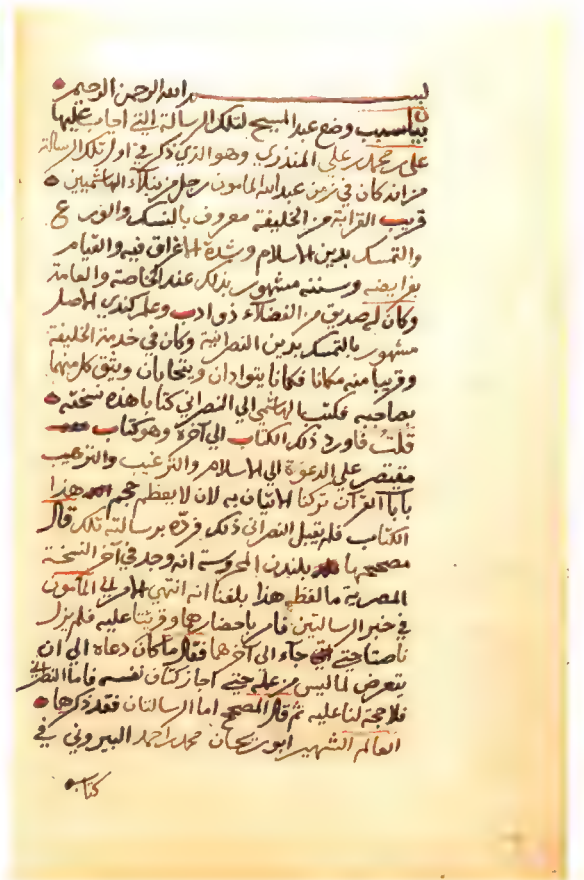 بسم الله الرحمن الرحيم
بيان سبب وضع عبد المسيح لتلك الرسالة التي اجاب عليها
على بن محمد بن علي المنذري وهو الذي ذكر في اول تلك الرسالة
من انه كان في زمن عبد الله المامون رجل من نبلاء الهاشميين
قريب القرابة من الخليفة معروف بالنسك والورع
والتمسك بدين الاسلام وشدة الاغراق فيه والقيام
بفرايضه وسننه مشهور بذلك عند الخاصة والعامة
وكان له صديق من الفضلاء ذو ادب وعلم كندي الاصل
مشهور بالتمسك بدين النصرانية وكان في خدمة الخليفة
وقريبا منه مكانا فكانا يتوادان ويتحابان ويثق كل منهما
بصاحبه فكتب الهاشمي الي النصراني كتابا هذه نسخته
قلت فاورد ذلك الكتاب الي آخره وهو كتاب
مقتصر على الدعوة الي الاسلام والترغيب والترهيب
بآيات القرآن تركنا الاتيان به لان لا يعظم حجم هذا
الكتاب فلم يقبل النصراني ذلك فرده برسالته تلك قال
مصححها بلندن المحروسة انه وجد في آخر النسخة
المصرية ما لفظه هذا بلغنا انه انتهى الامر الي المأمون
في خبر الرسالتين فامر باحضارهما وقريتا عليه فلم يزل
ناصتا حتي جآء الي آخرهما فقال ما كان دعاه الي ان
يتعرض لما ليس من عمله حتي اجاز كتاف نفسه فاما النصراني
فلا حجة لنا عليه ثم قال المصحح اما الرسالتان فقد ذكرهما
العالم الشهير ابو ريحان محمد بن احمد البيروني في
كتاب